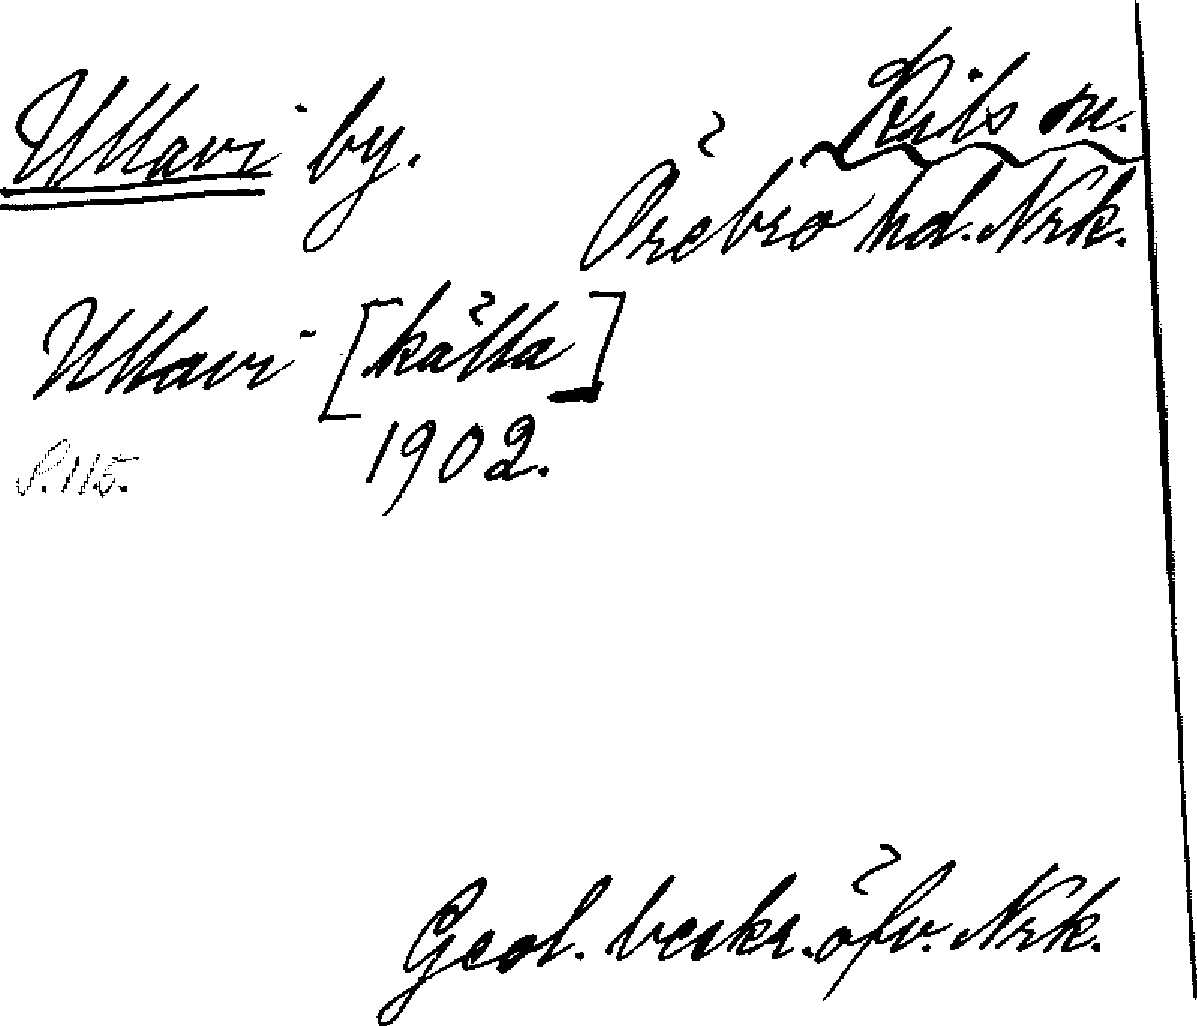 Ullavi by.
Kils sn.
Örebro hd. Nrk.
Ullavi [källa]
1902.
S. 115.
Geol. beskr. öfv. Nrk.